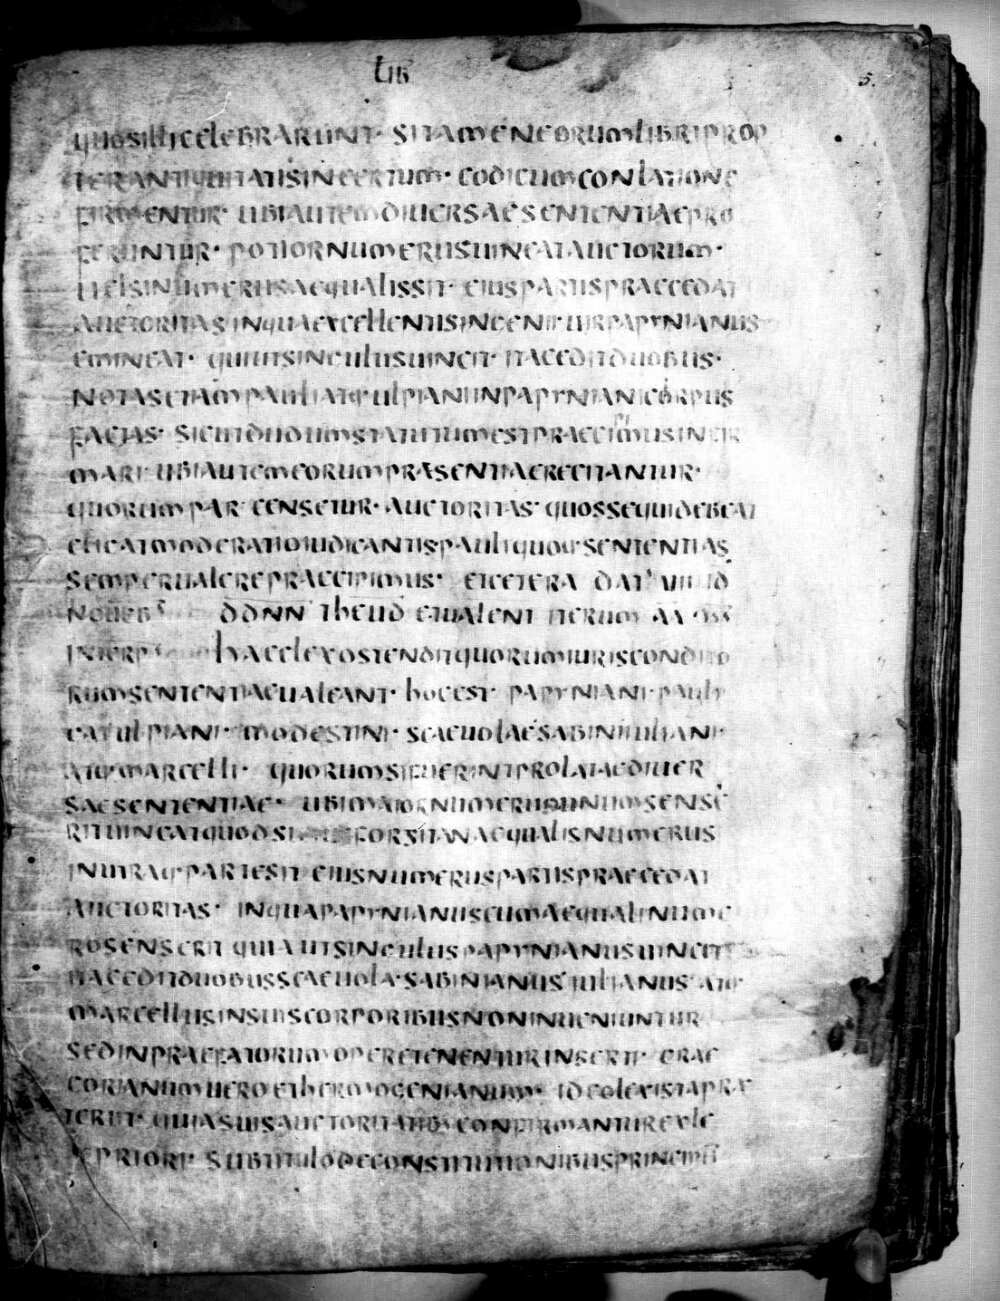 LIB
5.
QUOSILLICELEBRARUNT · SITAMENEORUMLIBRIPROP
TERANTIQUITATISINCERTUM · CODICUMCONLATIONE
FIRMENTUR · UBIAUTEMDIUERSAESENTENTIAEPRO
FERUNTUR · POTIORNUMERUSUINCATAUCTORUM ·
UELSINUMERUSAEQUALISSIT · EIUSPARTISPRAECEDAT
AUCTORITASINQUAEXCELLENTISINGENIIUIRPAPYNIANUS
EMINEAT · QUIUTSINGULUSUINCIT · ITACEDITDUOBUS ·
NOTASETIAMPAULIATQ·ULPIANIINPAPYNIANICORPUS
FACTAS · SICUTDUDUMSTATUTUMESTPRAECIPIMUSINFIR
MARI UBIAUTEMEORUMPRASENTIAERECITANTUR ·
QUORUMPAR CENSETUR · AUCTORITAS · QUOSSEQUIDEBEAT
ELIGATMODERATIOIUDICANTISPAULIQUOQ·SENTENTIAS
SEMPERUALEREPRAECIPIMUS · ETCETERA DAT UIII ID
NOUEB DDNN THEUD ETUALENT ITERUM AA
INTERP HAECLEXOSTENDITQUORUMIURISCONDITO
RUMSENTENTIAEUALEANT · HOCEST · PAPYNIANI · PAULI
GAIULPIANI · MODESTINI · SCAEUOLAESABINIIULIANI ·
ATQ·MARCELLI · QUORUMSIFUERINTPROLATAEDIUER
SAESENTENTIAE · UBIMAIORNUMERUSUNUMSENSE
RITUINCATQUODSI FORSITANAEQUALISNUMERUS
INUTRAQ·PARTESIT EIUSNUMERUSPARTISPRAECEDAT
AUCTORITAS · INQUAPAPYNIANUSCUMAEQUALINUME
ROSENSERIT QUIAUTSINGULUSPAPYNIANUSUINCIT
ITACEDITDUOBUSSCAEUOLA · SABINIANUS IULIANUS ATQ·
MARCELLUSINSUISCORPORIBUSNONINUENIUNTUR
SEDINPRAEFATORUMOPERETENENTURINSERTI · GRAE
GORIANUMUEROETHERMOGENIANUM · IDEOLEXISTAPRAE
TERIIT · QUIASUISAUCTORITATIBUSCONFIRMANTUREXLE
GEPRIORI · SUBTITULODECONSTITUTIONIBUSPRINCIPU